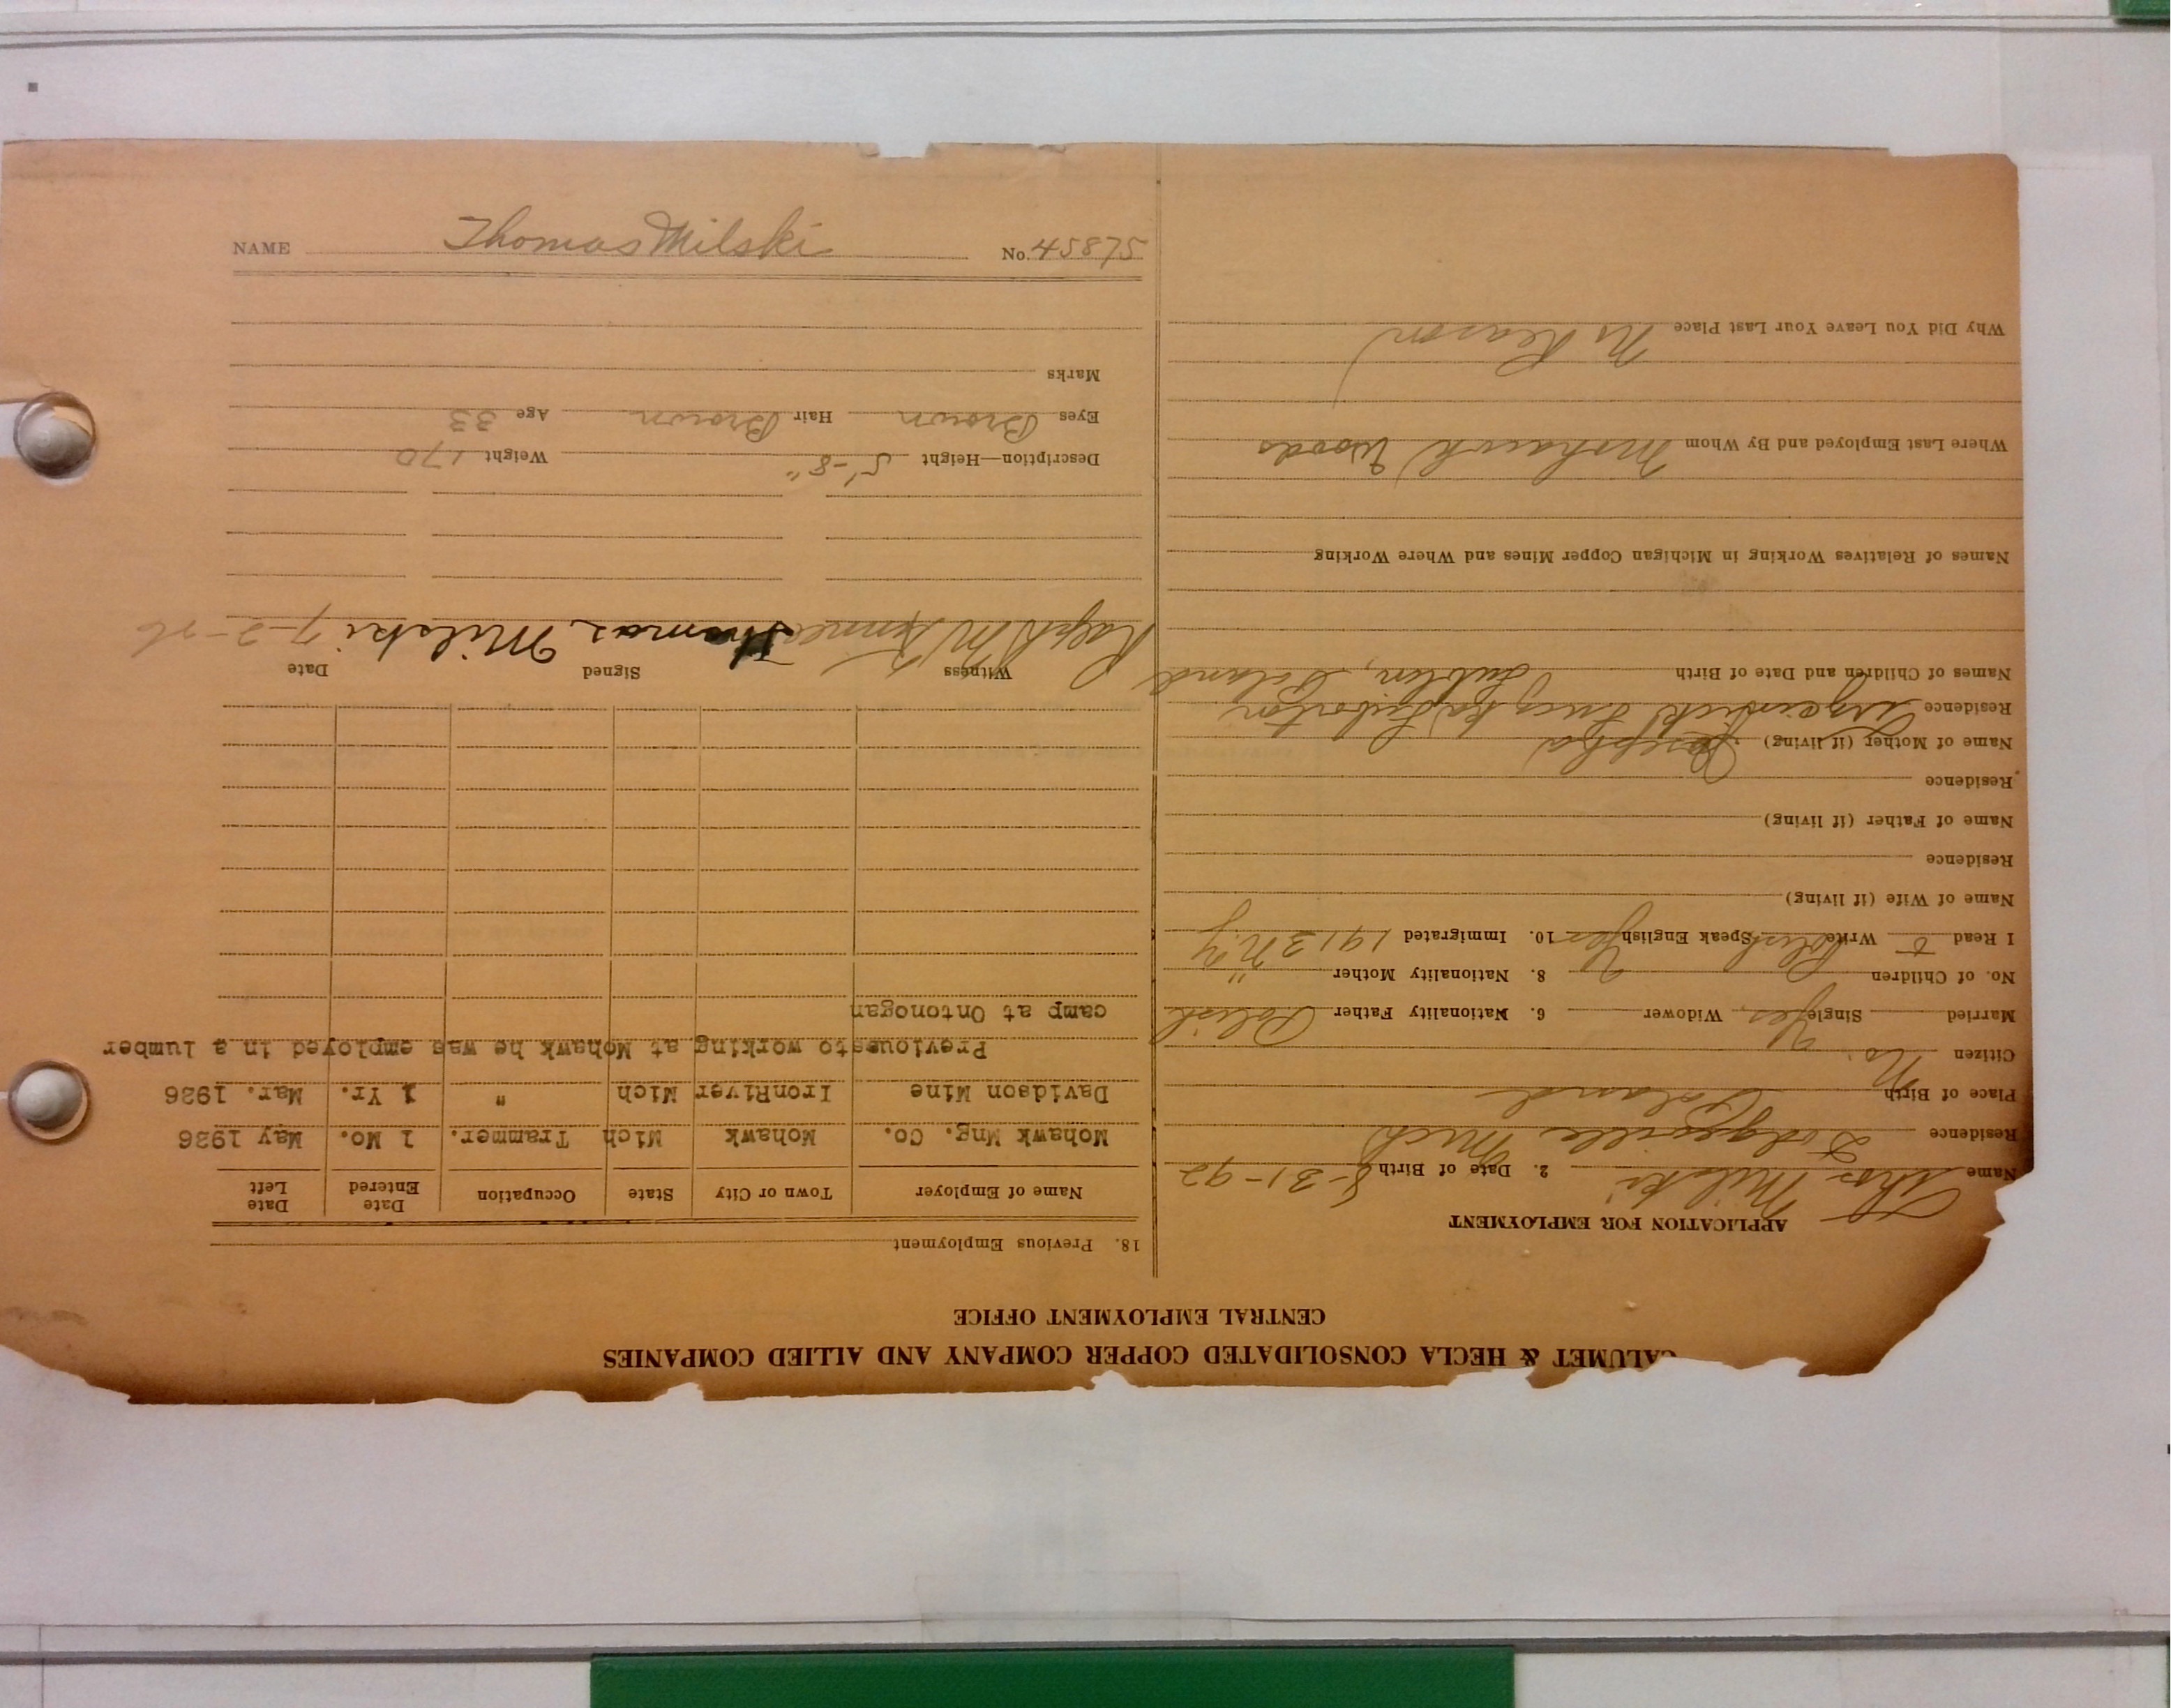 NAME Thomas Milski No. 45875
CALUMET & HECLA CONSOLIDATED COPPER COMPANY AND ALLIED COMPANIES
CENTRAL EMPLOYMENT OFFICE
APPLICATION FOR EMPLOYMENT
Name Thos. Milski 2. Date of Birth 8-31-92
Residence Dodgeville Mich
Place of Birth Poland
Citizen No.
Married Single Yes, Widower 6. Nationality Father Polish
No. of Children 8. Nationality Mother "
I Read & Write Polish Speak English Yes 10. Immigrated 1913 N.Y
Name of Wife (if living)
Residence
Name of Father (if living)
Residence
Name of Mother (if living) Josepha
Residence
Names of Children and Date of Birth Lublin, Poland
Names of Relatives Working in Michigan Copper Mines and Where Working
Where Last Employed and By Whom Mohawk Woods
Why Did You Leave Your Last Place No Reason
18. Previous Employment
Name of Employer Town or City State Occupation Date Entered Date Left
Mohawk Mng. Co. Mohawk Mich Trammer. 1 Mo. May 1926
Davidson Mine IronRiver Mich " 1 Yr. Mar. 1926
Previousto working at Mohawk he was employed in a lumber
camp at Ontonogan
Witness Signed Date
Ralph Thomas Milski 7-2-26
Description—Height 5'-8" Weight 170
Eyes Brown Hair Brown Age 33
Marks